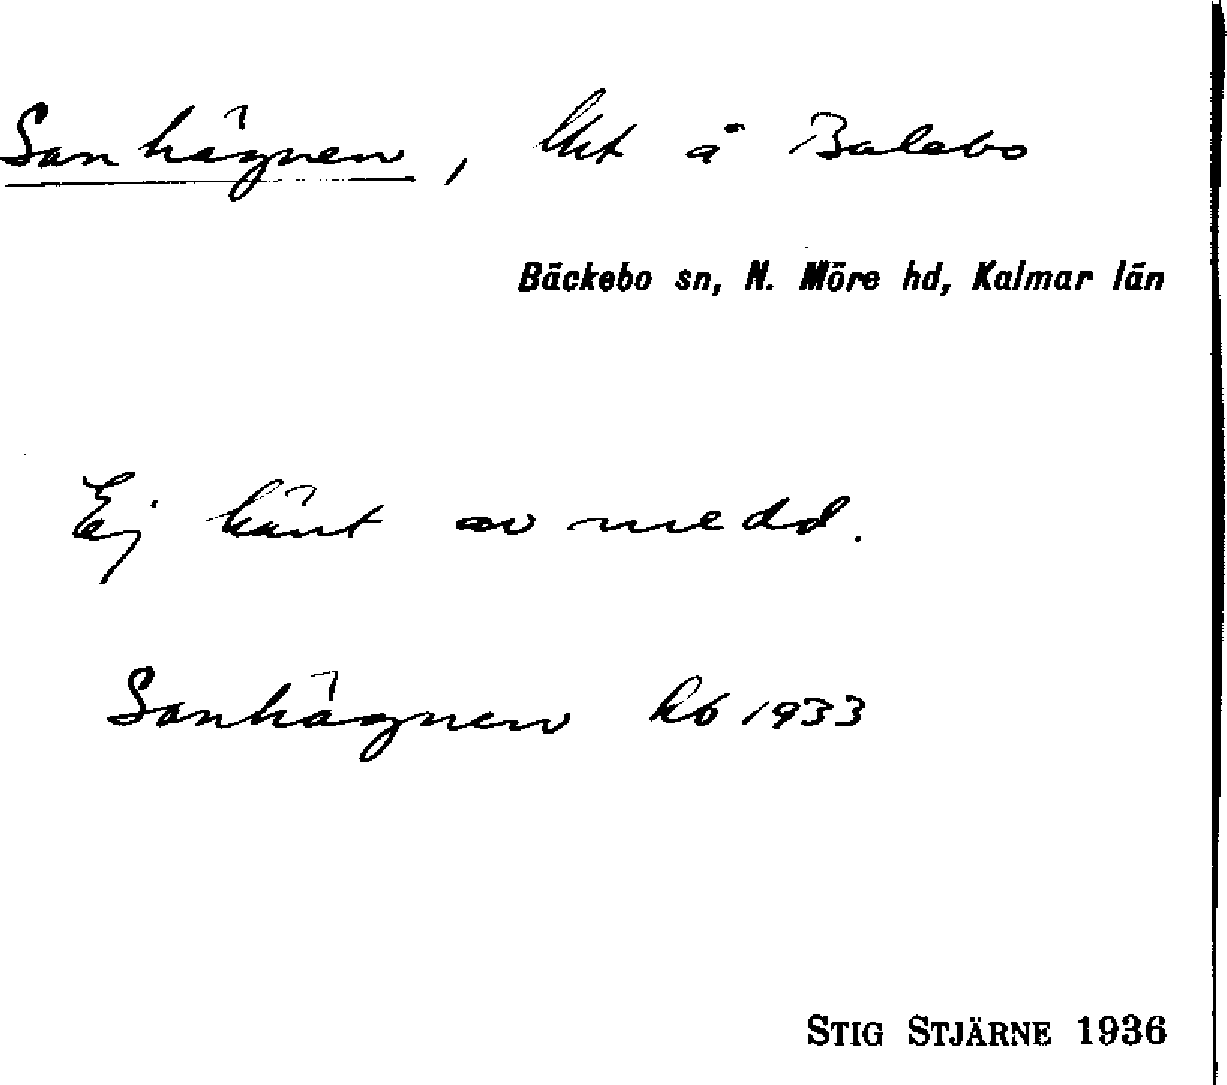 Sanhägnen, lkt å Balebo
Bäckebo sn, N. Möre hd, Kalmar län
Ej känt av medd.
Sanhägnen kb 1933
STIG STJÄRNE 1936